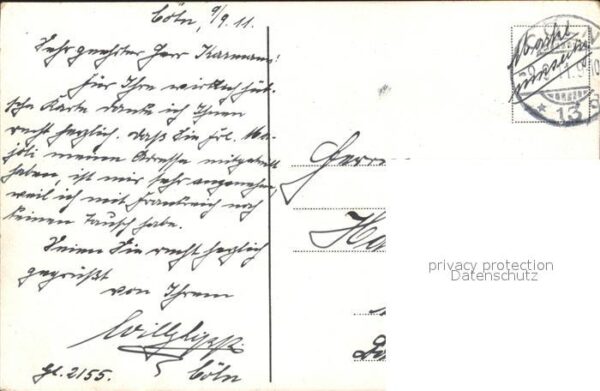 Cöln, 9/9. 11.
Sehr geehrter Herr Karmann!
Für Ihre wirklich hüb-
sche Karte danke ich Ihnen
recht herzlich. Daß Sie Frl. Ma-
joli meine Adresse mitgeteilt
haben, ist mir sehr angenehm,
weil ich mit Frankreich noch
keinen Tausch habe.
Seien Sie recht herzlich
gegrüßt
von Ihrem
Cöln
2155.
Herrn
privacy protection
Datenschutz
11.9
* * 13